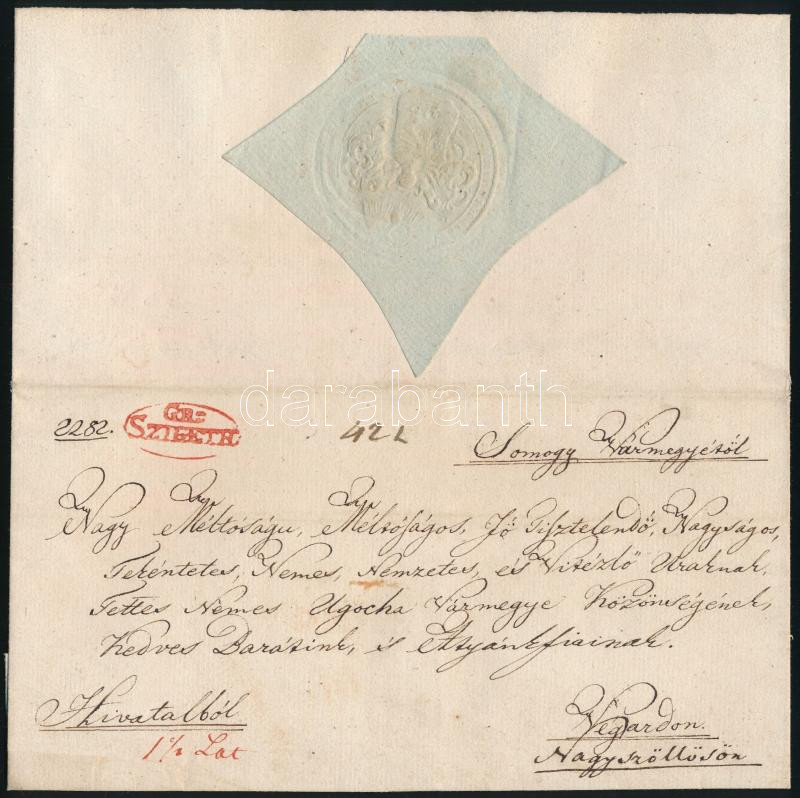 darabanth
2282.
GR:=
SZIGETH.
42 L
Somogy Vármegyétől
Nagy Méltóságu, Méltóságos, Fő Tisztelendő, Nagyságos,
Teкéntetes, Nemes, Nemzetes, és Vitézlő Uraknak,
Tettes Nemes Ugocha Vármegye Közönségének,
Kedves Barátink, és Attyánkfiainak.
Hivatalból
1 1/2 Lat
Végardon.
Nagyszöllösön